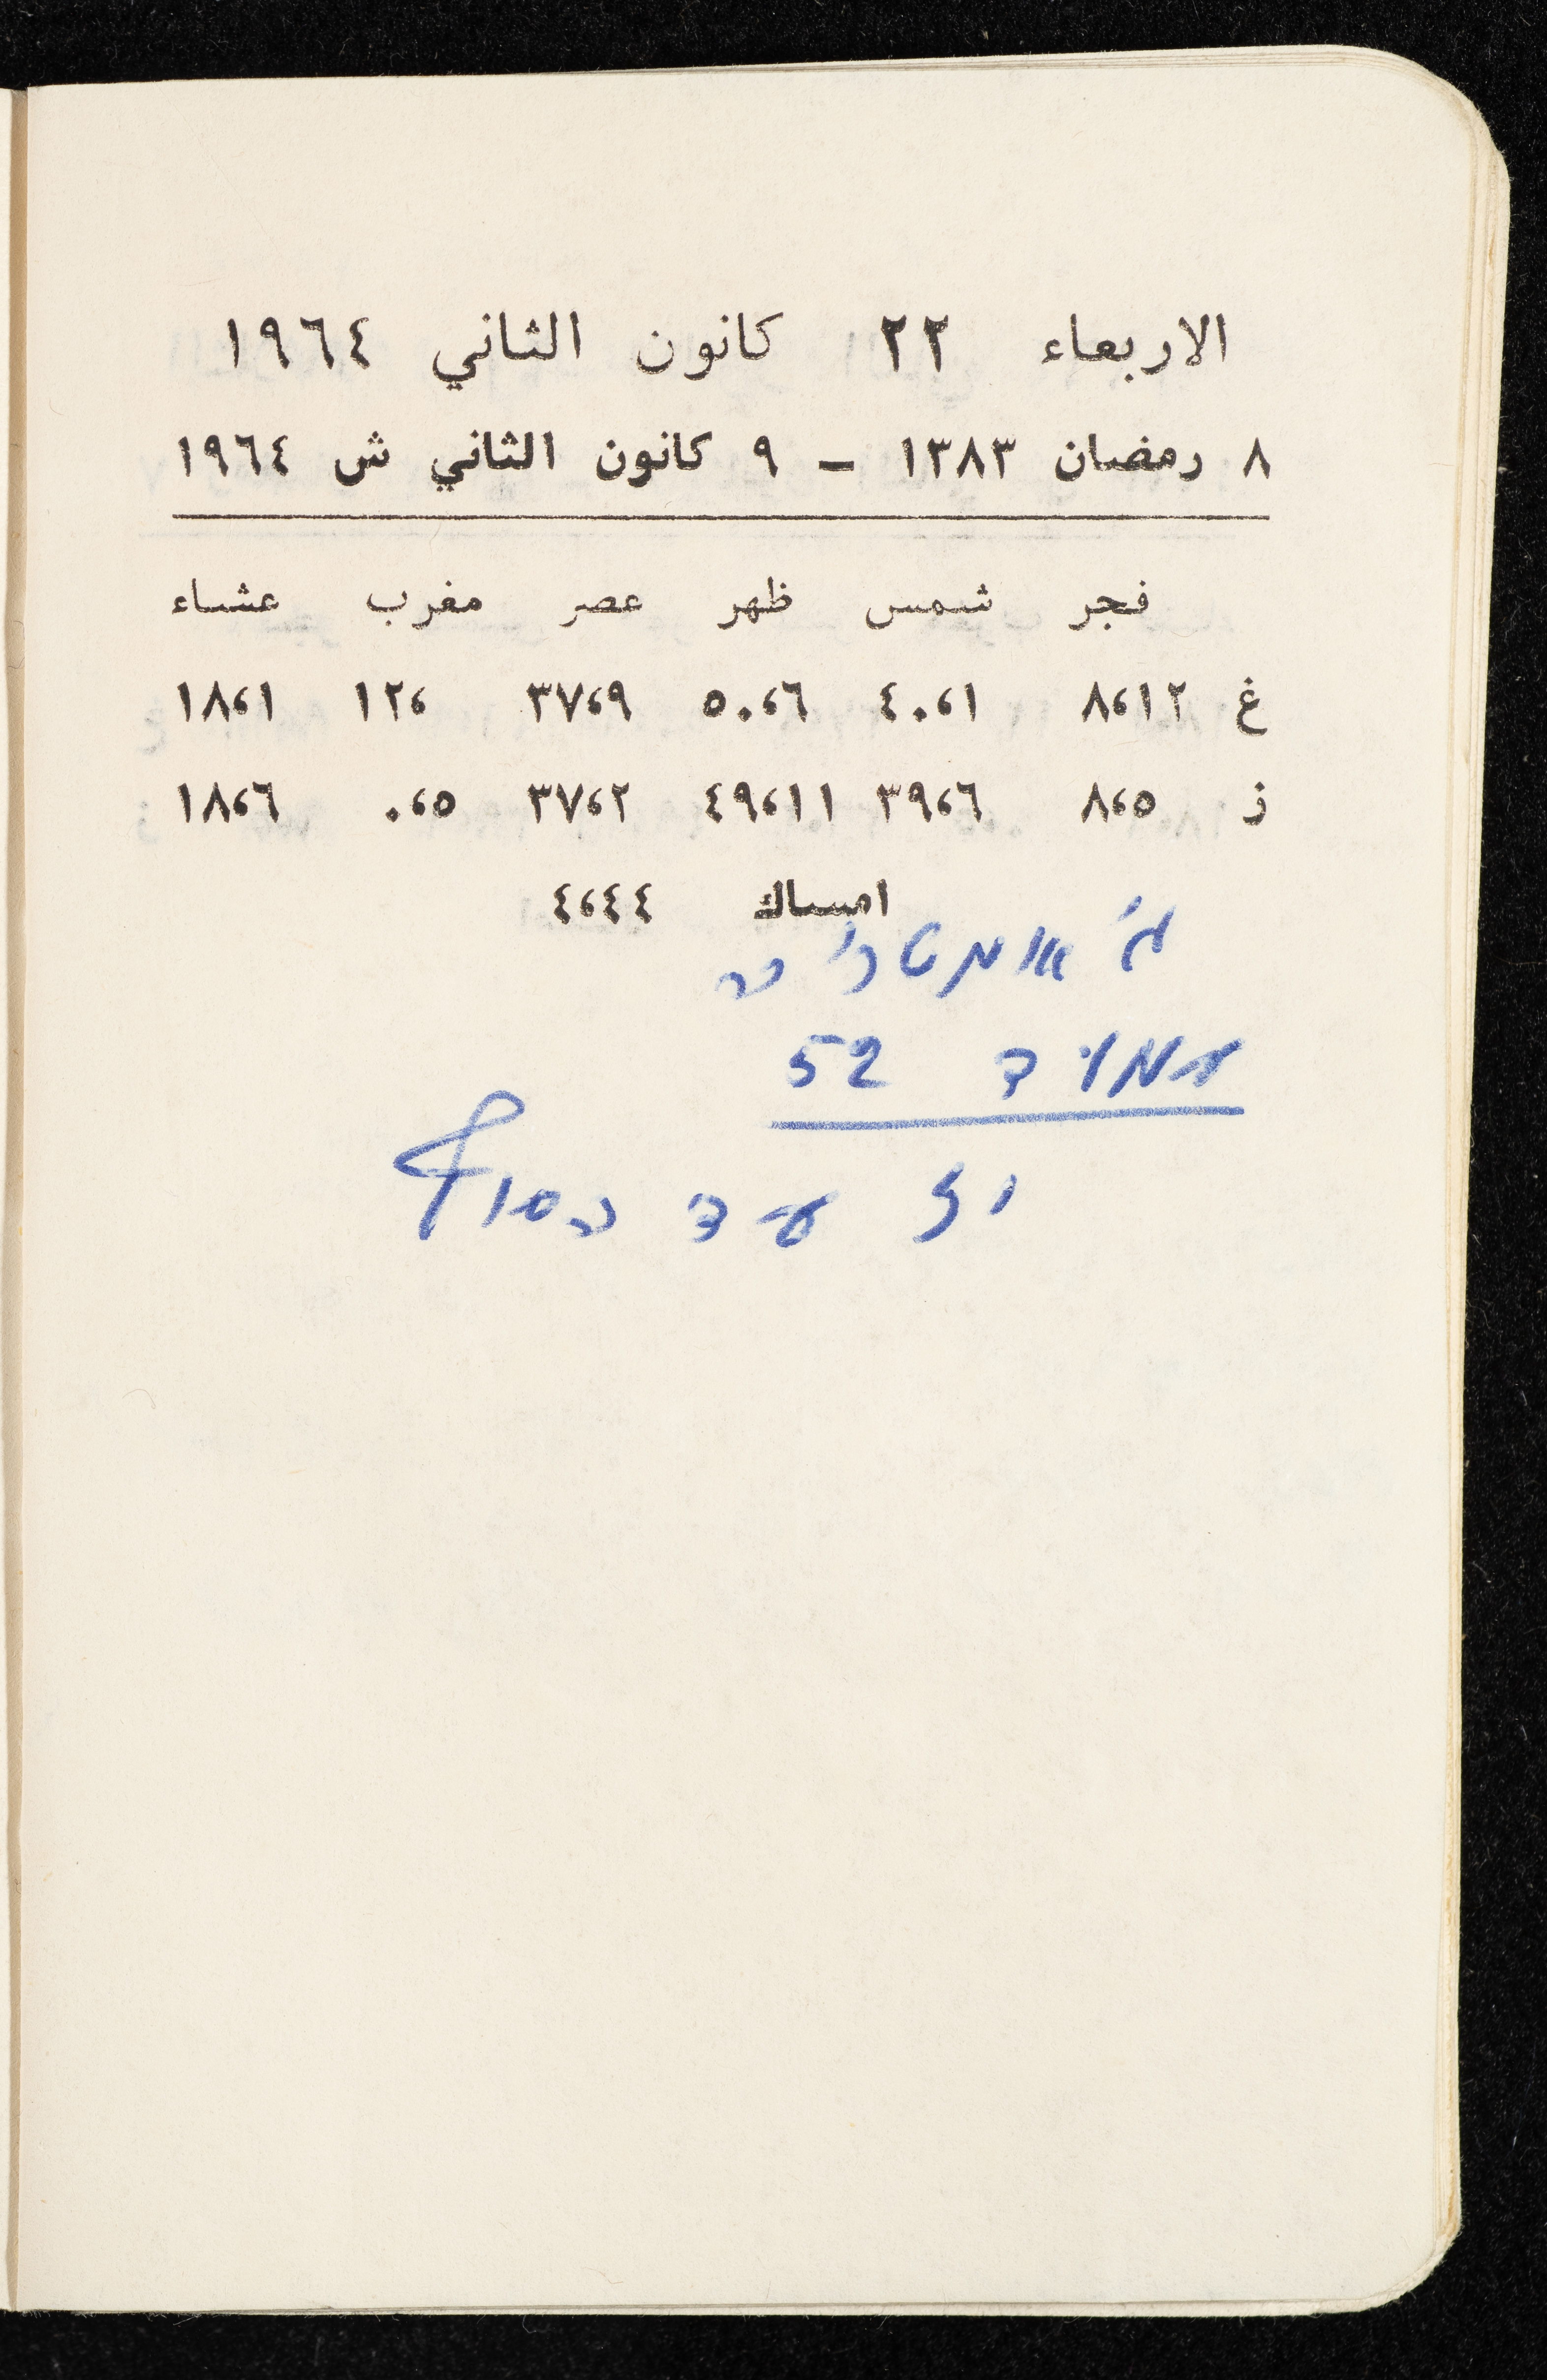 الاربعاء ٢٢ كانون الثاني ١٩٦٤
٨ رمضان ١٣٨٣ ـ ٩ كانون الثاني ش ١٩٦٤
فجر شمس ظهر عصر مغرب عشاء
غ ٨،١٢ ٤٠،١ ٥٠،٦ ٣٧،٩ ١٢، ١٨،١
ز ٨،٥ ٣٩،٦ ٤٩،١١ ٣٧،٢ ٠،٥ ١٨،٦
امساك ٤،٤٤
52
עד הסוף